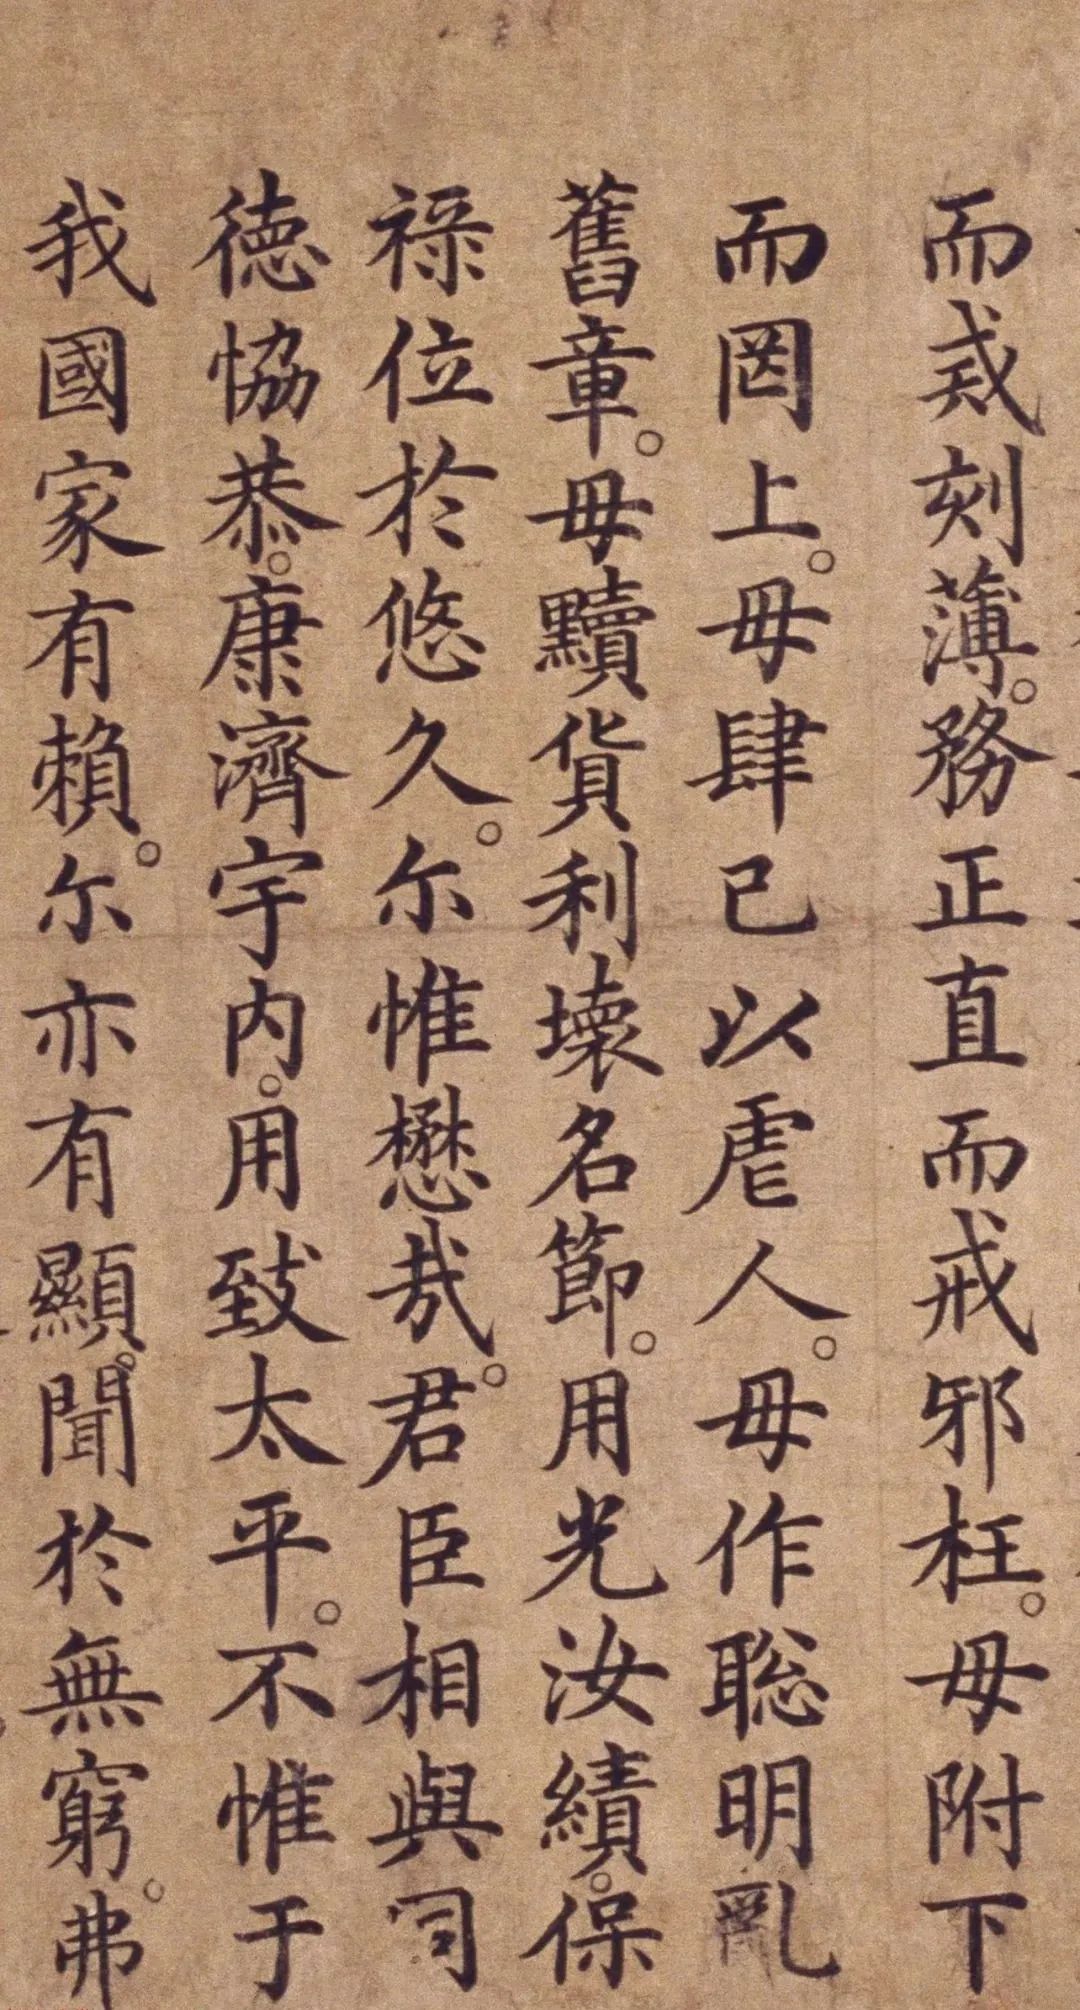 而戒刻薄。務正直而戒邪枉。毋附下
而罔上。毋肆己以虐人。毋作聡明亂
舊章。毋黷貨利壞名節。用光汝績。保
祿位於悠久。尔惟懋哉。君臣相與同
徳恊恭。康濟宇内。用致太平。不惟于
我國家有賴。尔亦有顯聞於無窮。弗